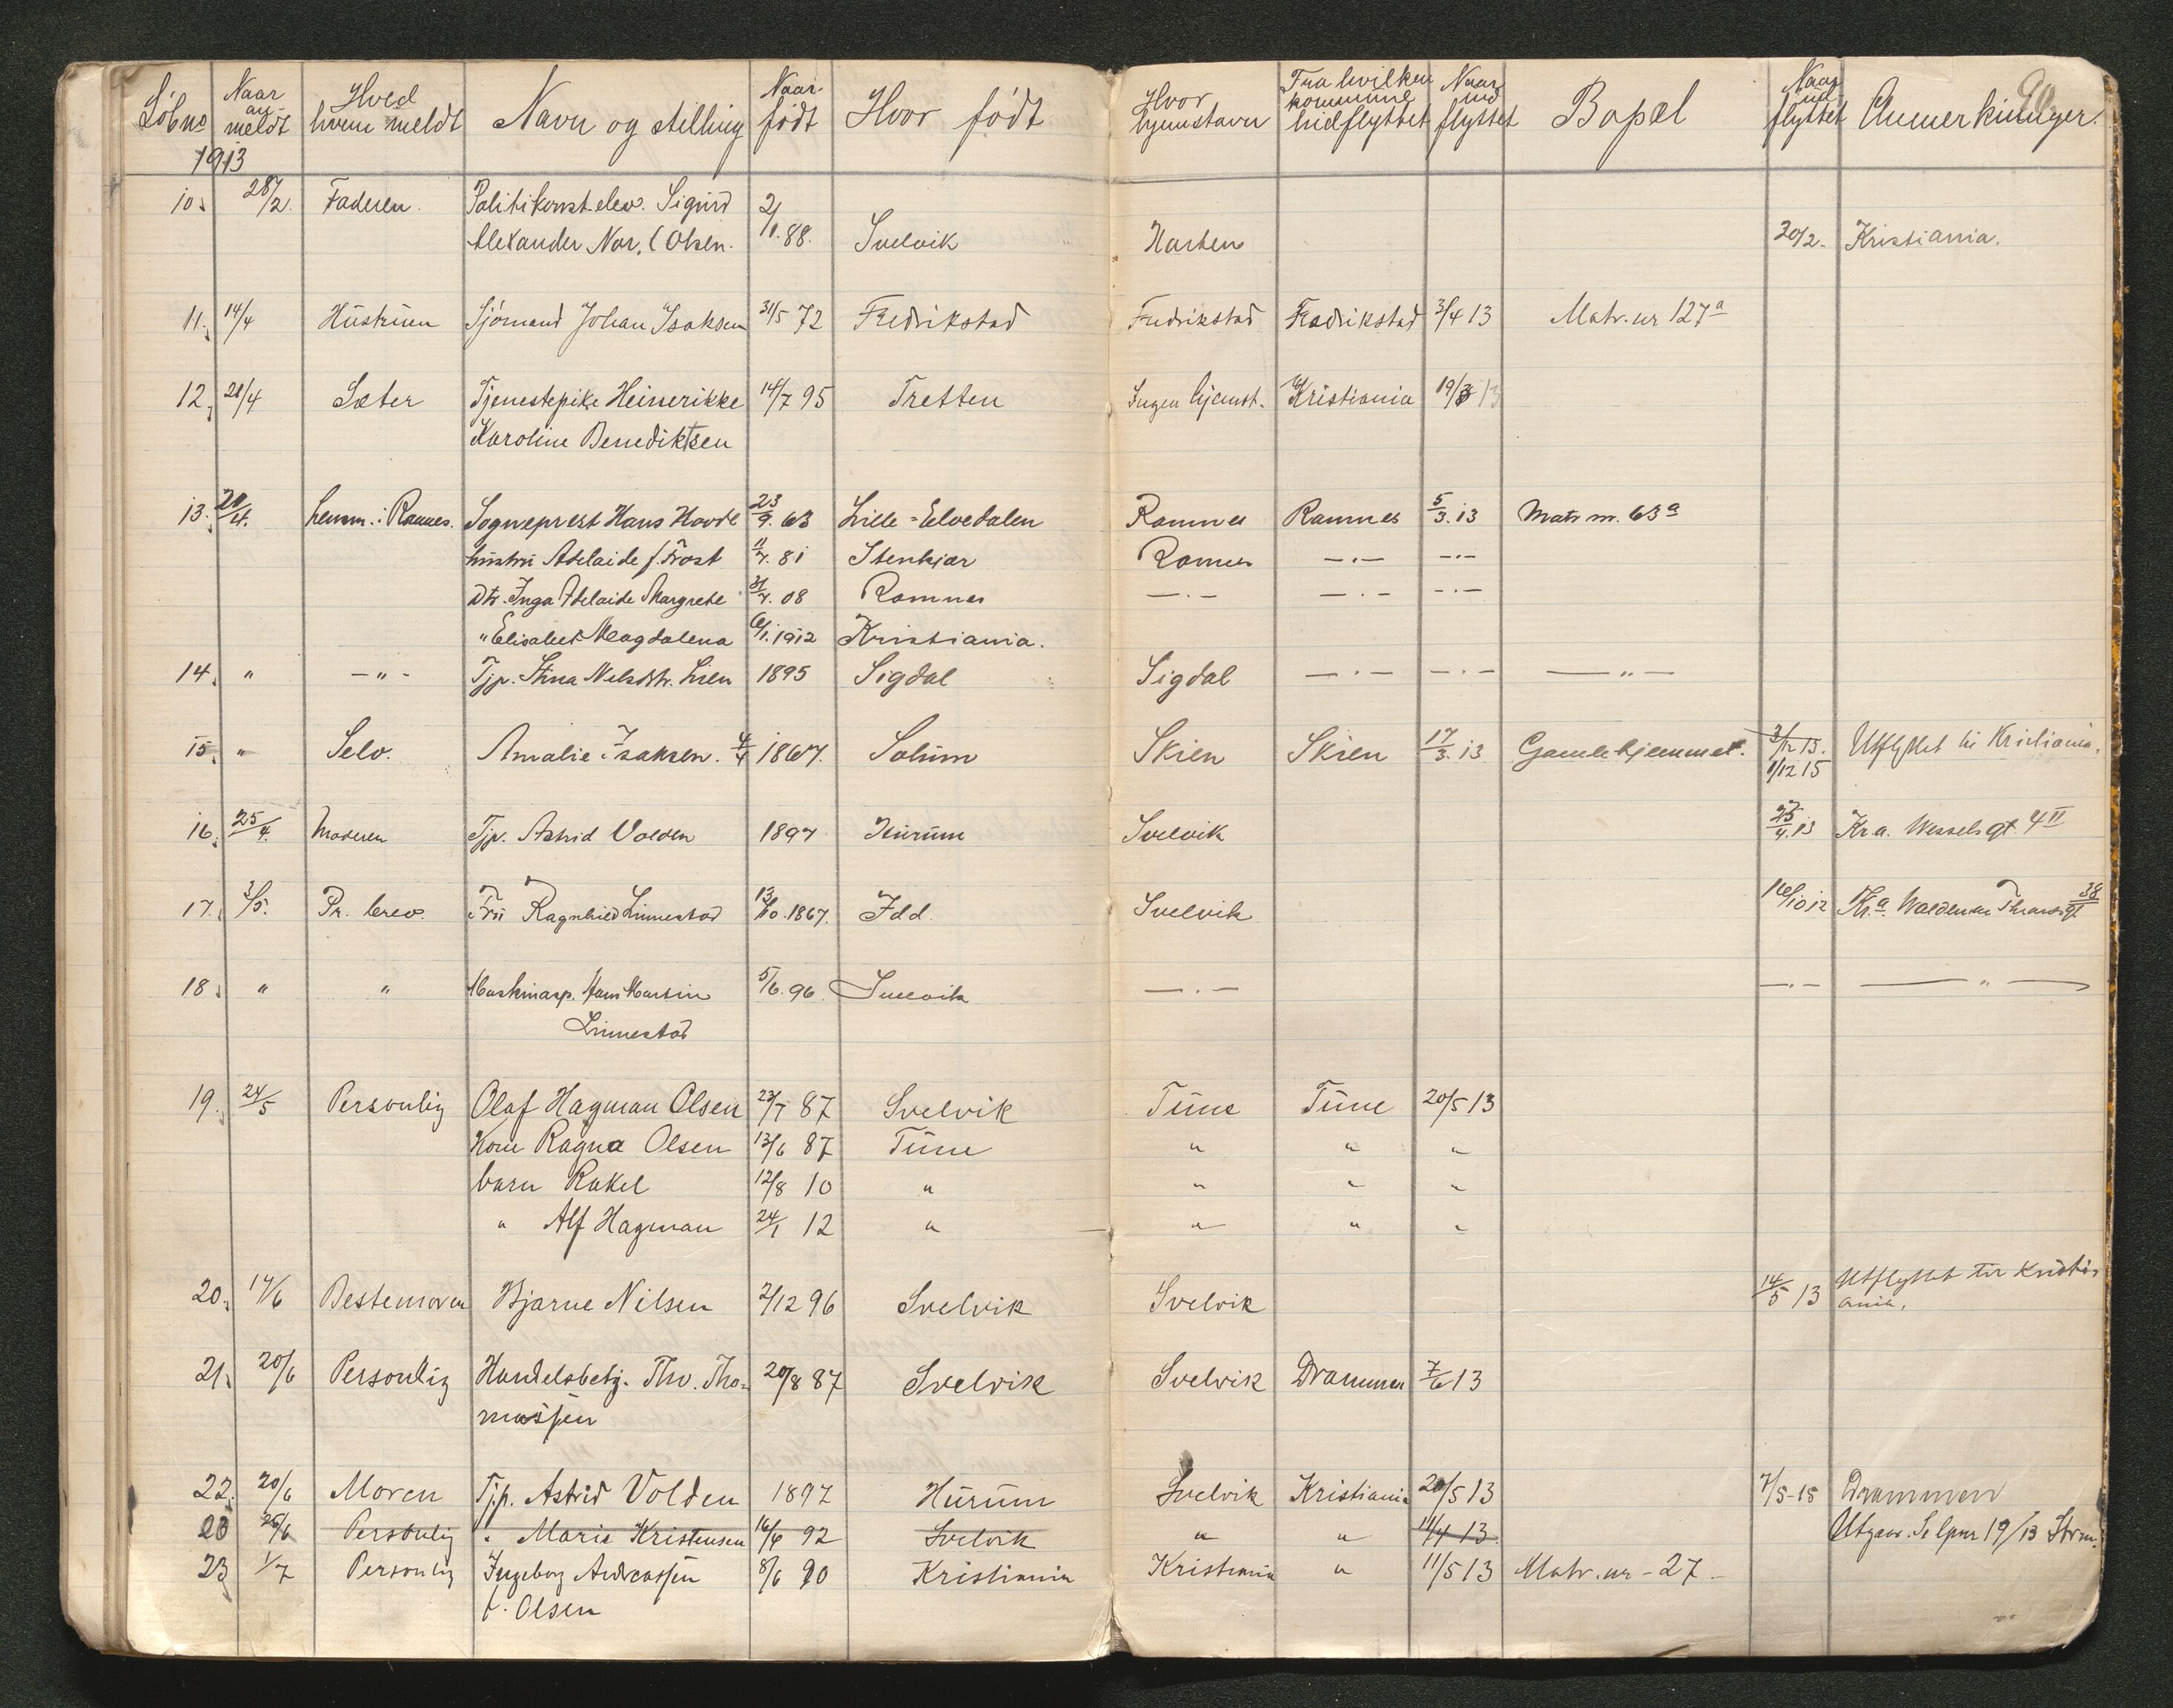 Löbno Naar an-meldt Hved hvem meldt Navn og stilling Naar født Hvor født Hvor hjemstavn Fra hvilken kommune hidflyttet Naar ind flyttet Bopæl Naar ud-flyttet Anmerkninger.
1913
10. 28/2. Faderen. Politikonst. elev. Sigurd 2/
Alexander Nor. Olsen. 1.88. Svelvik 20/2. Kristiania.
11. 14/4 Hustruen Sjömand Johan Isaksen 31/5 72 Fredrikstad Fredrikstad Fredrikstad 3/4 13 Matr. nr 127a
12. 21/4 Sæter Tjenestepike Heinrikke 14/7 95 Tretten Ingen hjemst. Kristiania 19/3 13
Karoline Benediktsen
13. 21/4. Lensm. i Ramnes. Sogneprest Hans Hovde 23/9. 63 Lille-Elvedalen Ramnes Ramnes 5/3.13 Matr nr. 63a
hustru Adelaide f. Frost 11/7. 81 Stenkjær Ramnes —.— —.—
Dtr. Inga Adelaide Margrete 31/7. 08 Ramnes —.— —.— —.—
" Elisabet Magdalena 6/1. 1912 Kristiania.
14. " —"— Tjp. Stina Nelsdtr. Lien 1895 Sigdal Sigdal —.— —.— —"—
15. " Selv. Amalie Isaksen. 4/4 1867. Solum Skien Skien 17/3. 13 Gamlehjemmet. 2/12 15. Utflyttet til Kristiania.
1/12 15
16. 25/4. Moderen Tjp. Astrid Volden 1897 Hurum Svelvik 25/4. 13 Kra. Wesselsgt 4 II
17. 3/5. Pr. brev. Fru Ragnhild Linnestad 13/10. 1867. Idd. Svelvik 16/10 12 Kra. Waldemar Thranes gt 38
18. " " Maskinasp. Hans Martin 5/6. 96. Svelvik —.— —.— —"—
Linnestad
19. 24/5 Personlig Olaf Hagman Olsen 23/7 87 Svelvik Tune Tune 20/5 13
Kone Ragna Olsen 13/6 87 Tune " " "
barn Rakel 12/8 10 " " " "
" Alf Hagman 24/1 12 " " " "
20. 14/6 Bestemoren Bjarne Nilsen 2/12 96 Svelvik Svelvik 14/5 13 Utflyttet til Kristi-
ania.
21. 20/6 Personlig Handelsbetj. Thv. Tho- 20/8 87 Svelvik Svelvik Drammen 7/6 13
massen
22. 20/6 Moren Tjp. Astrid Volden 1897 Hurum Svelvik Kristiania 20/5 13 7/5-15 Drammen
23 25/6 Personlig " Marie Kristensen 16/4 92 Svelvik " " 11/4 13. Utgaar. Se lpnr 19/13
23 1/7 Personlig Ingeborg Andreassen 8/6 90 Kristiania Kristiania " 11/5 13 Matr. nr - 27 -
f. Olsen